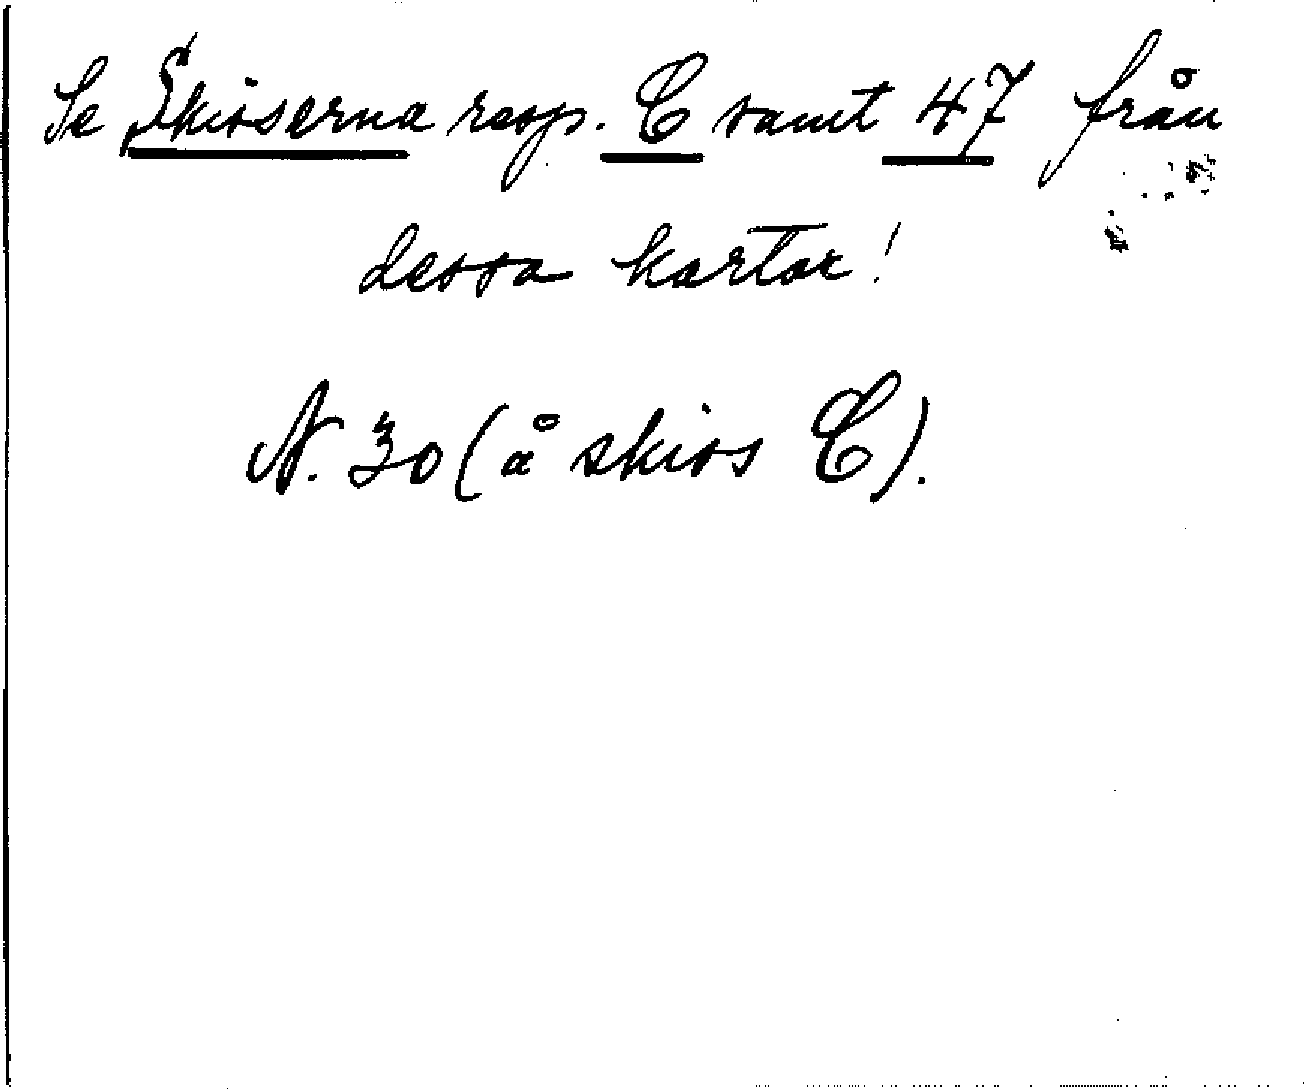 Se Skisserna resp. C samt 47 från
dessa kartor!
N. 30 (å skiss C).